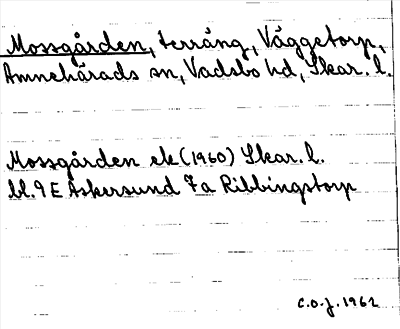 Mossgården, terräng, Väggetorp,
Amnehärads sn, Vadsbo hd, Skar. l.
Mossgården ek (1960) Skar. l.
bl. 9 E Askersund 7a Ribbingstorp
C.O.J. 1962